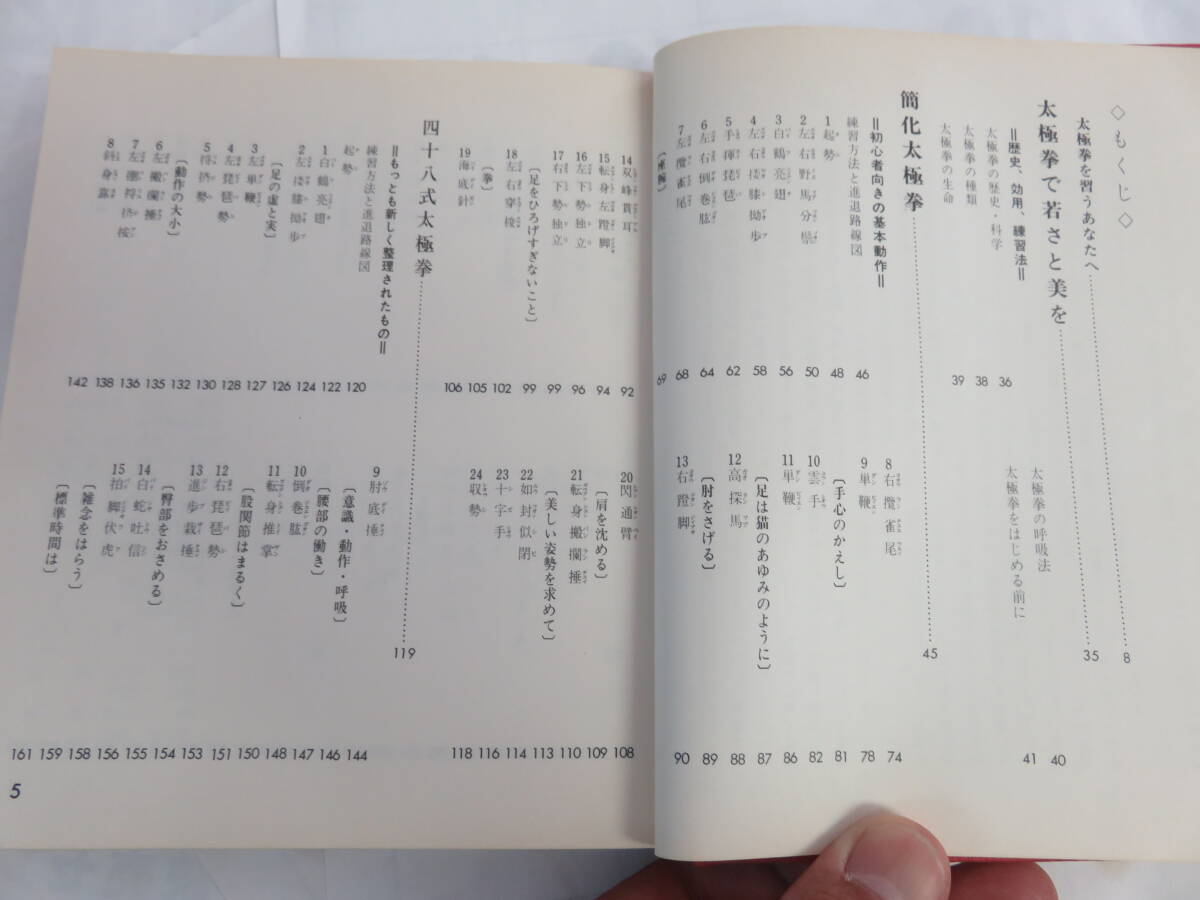 ◇もくじ◇
太極拳を習うあなたへ……8
太極拳で若さと美を……35
＝歴史、効用、練習法＝
太極拳の歴史・科学 36
太極拳の種類 38
太極拳の生命 39
太極拳の呼吸法 40
太極拳をはじめる前に 41
簡化太極拳……45
＝初心者向きの基本動作＝
練習方法と進退路線図 46
1 起勢 48
2 左右野馬分鬃 50
3 白鶴亮翅 56
4 左右搂膝拗歩 58
5 手揮琵琶 62
6 左右倒巻肱 64
7 左攬雀尾 68
69
8 右攬雀尾 74
9 単鞭 78
〔手心のかえし〕 81
10 雲手 82
11 単鞭 86
〔足は猫のあゆみのように〕 87
12 高探馬 88
〔肘をさげる〕 89
13 右蹬脚 90
14 双峰貫耳 92
15 転身左蹬脚 94
16 左下勢独立 96
17 右下勢独立 99
〔足をひろげすぎないこと〕 99
18 左右穿梭 102
〔拳〕 105
19 海底針 106
20 閃通臂 108
〔肩を沈める〕 109
21 転身搬攔捶 110
〔美しい姿勢を求めて〕 113
22 如封似閉 114
23 十字手 116
24 収勢 118
四十八式太極拳……119
＝もっとも新しく整理されたもの＝
練習方法と進退路線図 120
起勢 122
1 白鶴亮翅 124
2 左搂膝拗歩 126
3 左単鞭 127
4 左琵琶勢 128
〔足の虚と実〕 130
5 捋挤勢 132
6 左搬攔捶 135
〔動作の大小〕 136
7 左掤捋挤按 138
8 斜身靠 142
9 肘底捶 144
〔意識・動作・呼吸〕 146
〔腰部の働き〕 147
10 倒巻肱 148
11 転身推掌 150
〔股関節はまるく〕 151
12 右琵琶勢 153
13 進歩栽捶 154
〔臀部をおさめる〕 155
14 白蛇吐信 156
15 拍脚伏虎 158
〔雑念をはらう〕 159
〔標準時間は〕 161
5